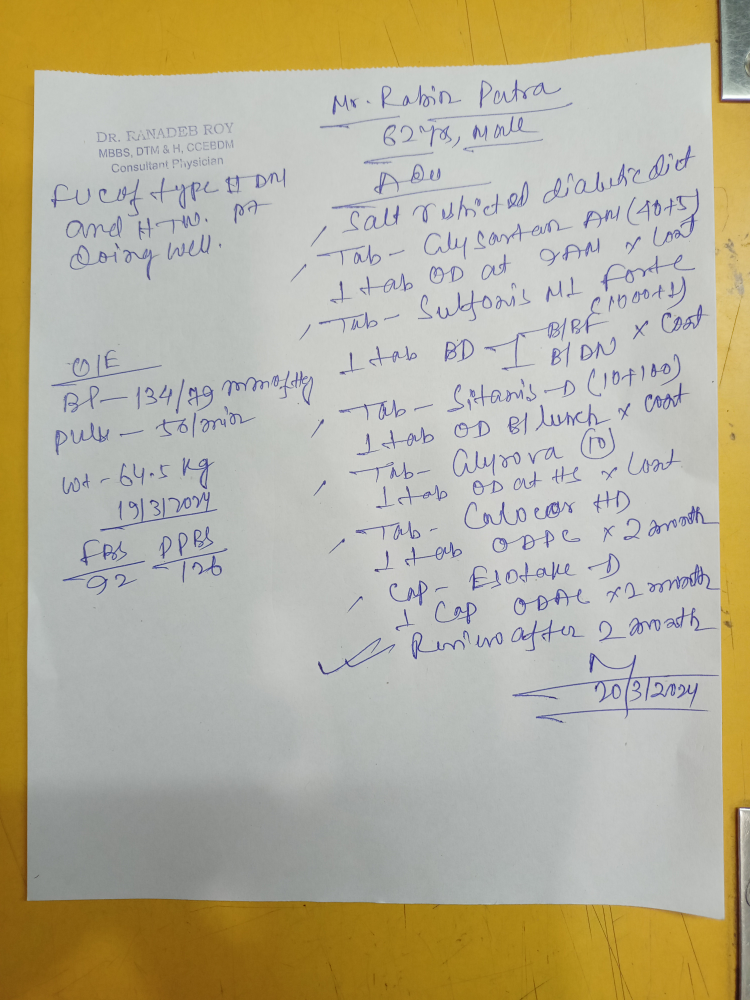 DR. RANADEB ROY
MBBS, DTM & H, CCEBDM
Consultant Physician
FUC of type II DM
and HTN. pt
doing well.
O/E
BP - 134/79 mm of Hg
Pulse - 56/min
Wt - 64.5 kg
19/3/2024
FBS PPBS
92 126
Mr. Rabin Patra
62 yrs, Male
Adv
Salt restricted diabetic diet
Tab - Glysartan AM (40+5)
1 tab OD at 9 AM x Cont
Tab - Sulfonis M1 Forte
(1000+1)
1 tab BD - B/BF
B/DN x Cont
Tab - Sitanis - D (10+100)
1 tab OD B/lunch x cont
Tab - Glyrova (10)
1 tab OD at HS x Cont
Tab - Calocar HD
1 tab OD PC x 2 month
Cap - Esotake - D
1 Cap OD AC x 2 month
Review after 2 month
20/3/2024